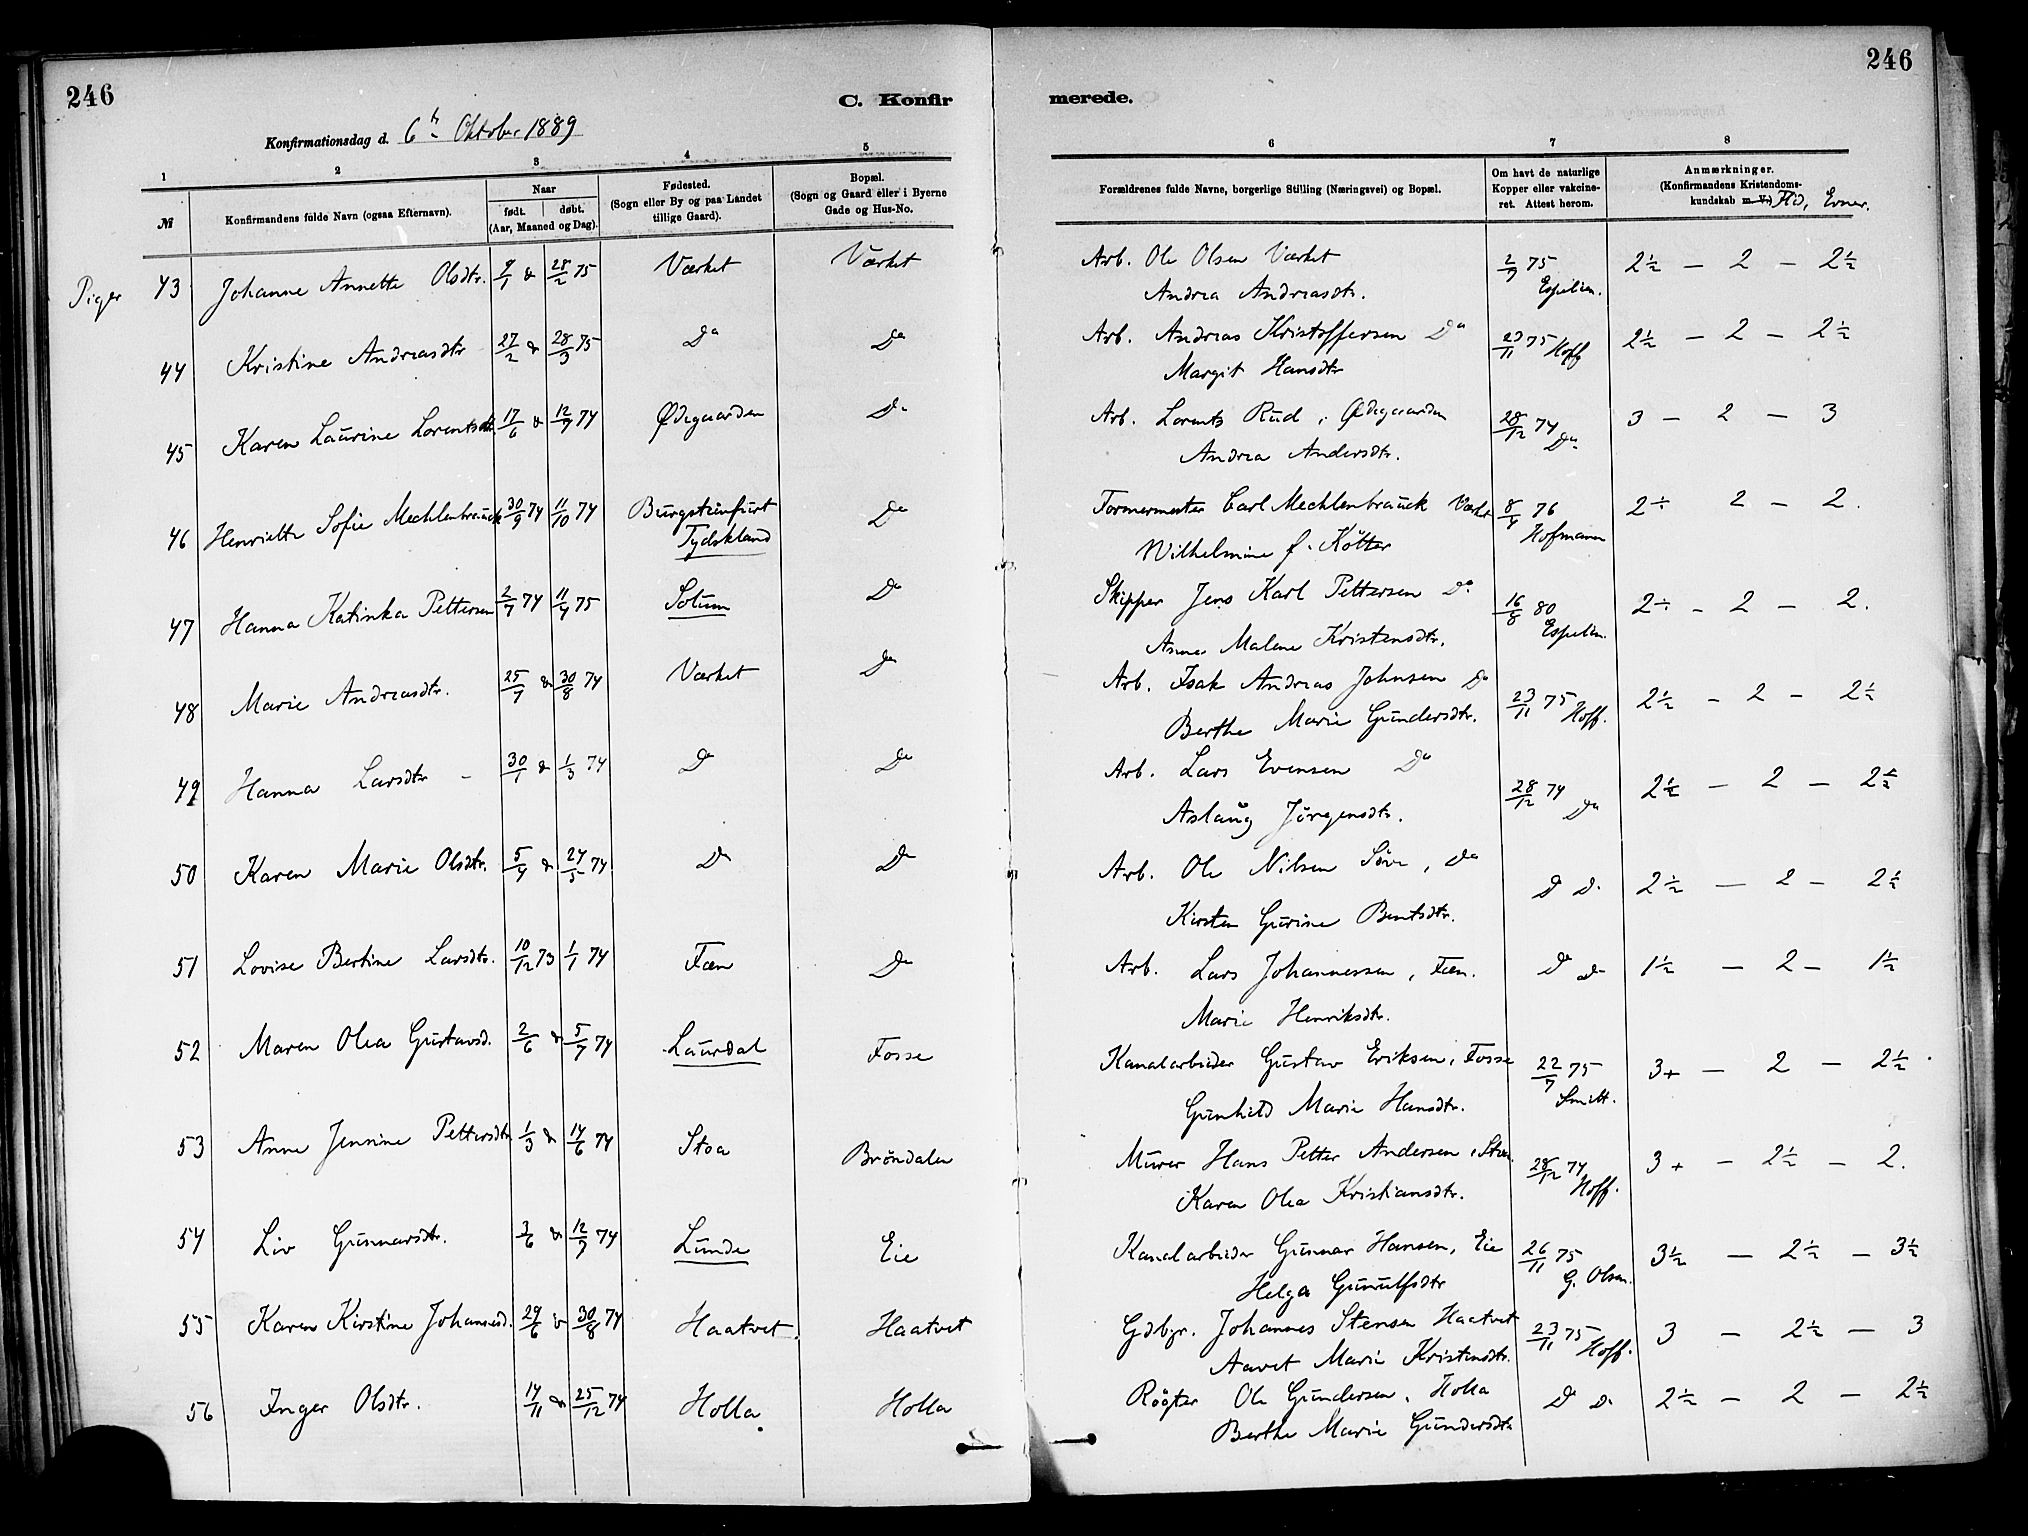 246
246
C. Konfir
merede.
Konfirmationsdag d. 6te Oktober 1889
1
2
3
4
5
6
7
8
№
Konfirmandens fulde Navn (ogsaa Efternavn).
Naar
født. døbt.
(Aar, Maaned og Dag).
Fødested.
(Sogn eller By og paa Landet
tillige Gaard).
Bopæl.
(Sogn og Gaard eller i Byerne
Gade og Hus-No.
Forældrenes fulde Navne, borgerlige Stilling (Næringsvei) og Bopæl.
Om havt de naturlige
Kopper eller vakcine-
ret. Attest herom.
Anmærkninger.
(Konfirmandens Kristendoms-
kundskab m. V.) Flid, Evner.
Piger 43 Johanne Annette Olsdtr. 9/1 & 28/2 75 Værket Værket Arb. Ole Olsen Værket 2/7 75 2½ — 2 — 2½
Andrea Andreasdtr. Espelien.
44 Kristine Andreasdtr 27/2 & 28/3 75 Do Do Arb. Andreas Kristoffersen Do 23/11 75 Hoff 2½ — 2 — 2½
Margit Hansdtr
45 Karen Laurine Lorentsdt. 17/6 & 12/7 74 Ødegaarden Do Arb. Lorents Rud, Ødegaarden 28/12 74 Do 3 — 2 — 3
Andrea Andersdtr.
46 Henriette Sofie Mechlenbrauck 30/9 74 11/10 74 Burgsteinfurt Do Formermester Carl Mechlenbrauck Værket 8/4 76 2÷ 2 — 2.
Tydskland Wilhelmine f. Kötter Hofmann
47 Hanna Katinka Pettersen 2/7 74 11/4 75 Solum Do Skipper Jens Karl Pettersen Do 16/8 80 2÷ — 2 — 2.
Anne Malene Kristensdtr. Espelien.
48 Marie Andreasdtr. 25/7 & 30/8 74 Værket Do Arb. Isak Andreas Johnsen Do 23/11 75 Hoff. 2½ — 2 — 2½
Berthe Marie Gundersdtr.
49 Hanna Larsdtr — 30/1 & 1/3 74 Do Do Arb. Lars Evensen Do 28/12 74 Do 2½ — 2 — 2½
Aslaug Jörgensdtr.
50 Karen Marie Olsdtr. 5/4 & 24/5 74 Do Do Arb. Ole Nilsen Söve, Do Do Do 2½ — 2 — 2½
Kirsten Gurine Bentsdtr.
51 Lovise Bertine Larsdtr. 10/12 73 1/1 74 Fæn Do Arb. Lars Johannessen, Fæn. Do Do 1½ — 2 — 1½
Marie Henriksdtr.
52 Maren Olea Gustavsd. 2/6 & 5/7 74 Laurdal Fosse Kanalarbeider Gustav Eriksen, Fosse 22/7 75 3+ — 2 — 2½
Gunhild Marie Hansdtr. Smitt.
53 Anne Jensine Pettersdtr 1/3 & 14/6 74 Stoa Bröndalen Murer Hans Petter Andersen, Stoa 28/12 74 Hoff. 3+ — 2½ — 2.
Karen Olea Kristiansdtr.
54 Liv Gunnarsdtr. 3/6 & 12/7 74 Lunde Eie Kanalarbeider Gunnar Hansen, Eie 26/11 75 3½ — 2½ — 3½
Helga Gunulfsdtr G. Olsen.
55 Karen Kirstine Johannesd. 29/6 & 30/8 74 Haatvet Haatvet Gdbgr. Johannes Stensen Haatvet 23/11 75 Hoff. 3 — 2½ — 3
Aavet Marie Kristensdtr.
56 Inger Olsdtr. 14/11 & 25/12 74 Holla Holla Røgter Ole Gundersen, Holla Do Do 2½ — 2 — 2½
Berthe Marie Gundersdtr